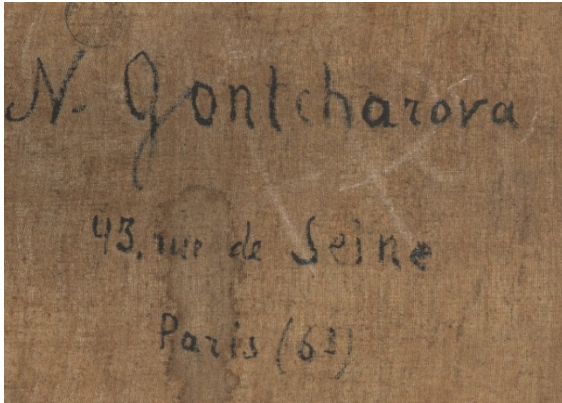 N. Gontcharova
43, rue de Seine
Paris (6e)